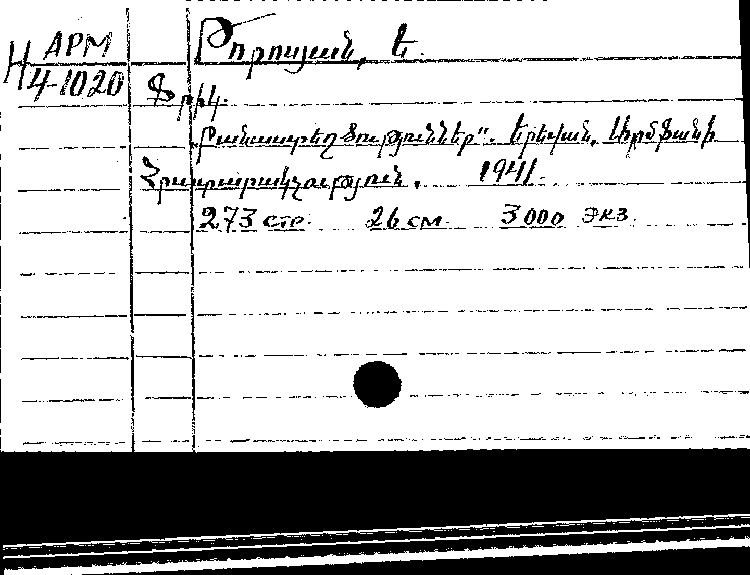 H АРМ
4-1020
Թորոսյան, Ե.
Ֆրիկ.
„Բանաստեղծություններ". Երևան, Արմֆանի
Հրատարակչություն. 1941.
273 стр. 26 см. 3000 экз.